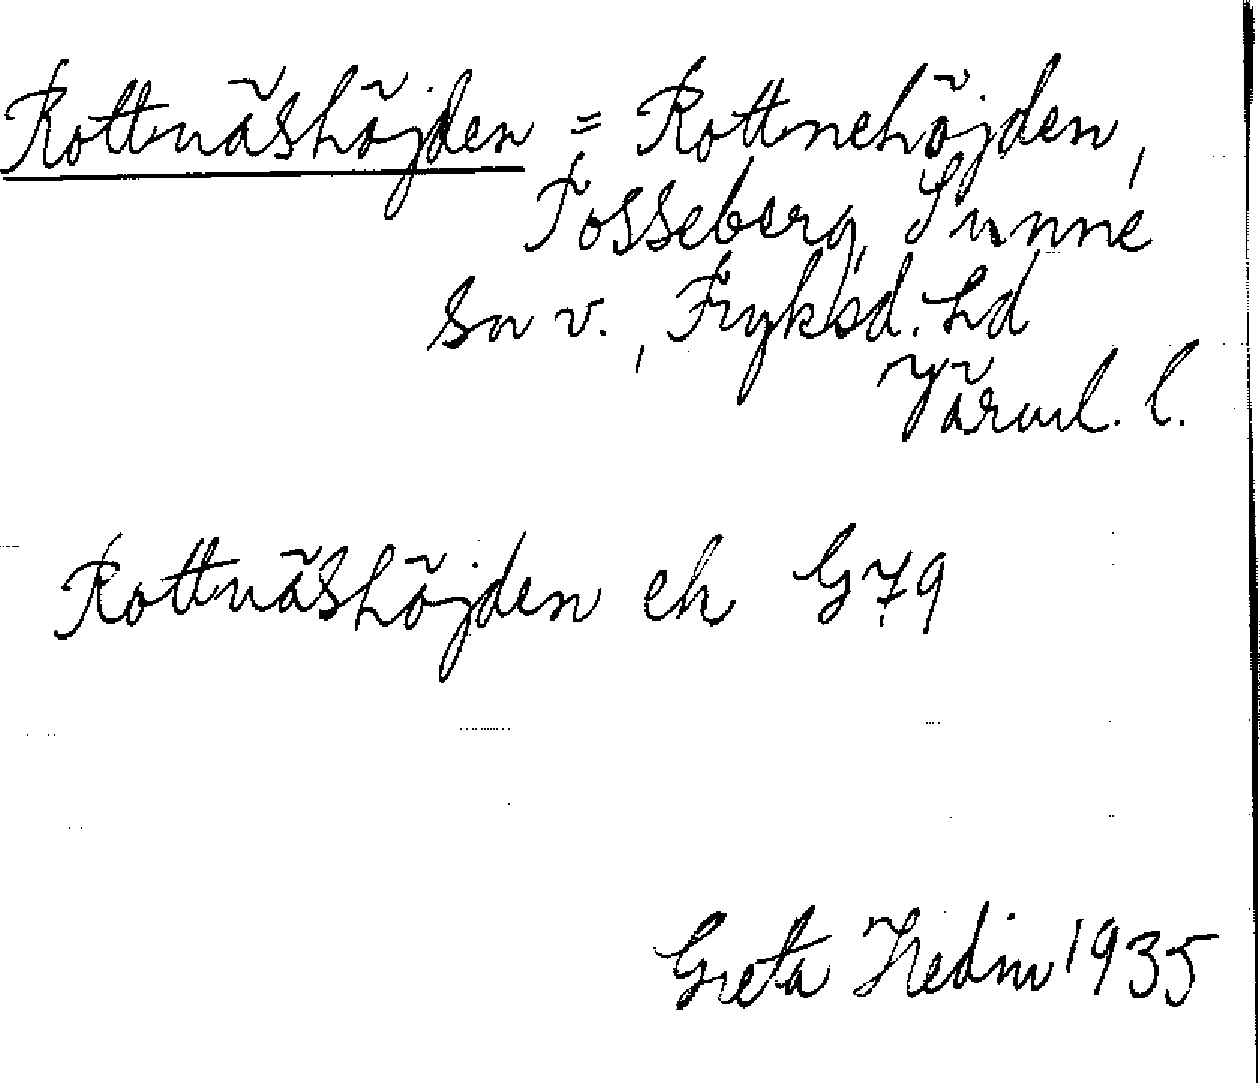 Rottnäshöjden = Rottnehöjden,
Tosseberg, Sunne
sn v., Fryksd. hd
Värml. l.
Rottnäshöjden ek G79
Greta Hedin 1935